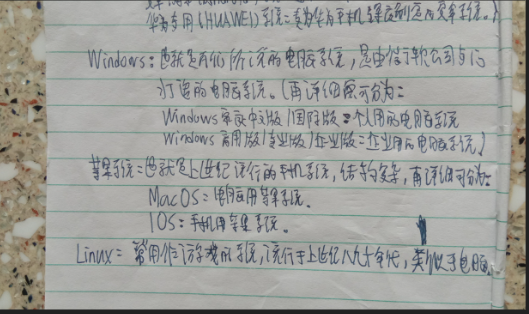 华为专用(HUAWEI)系统:专为华为手机
Windows:也就是我们所说的电脑系统,是由微软公司
打造的电脑系统。(再详细可分为:
Windows 家庭中文版/国际版:个人用的电脑系统
Windows 商用版/专业版/企业版:企业用的电脑系统。)
苹果系统:也就是上世纪流行的手机系统,结构复杂,再详细可分为:
MacOS:电脑用苹果系统。
IOS:手机用苹果系统。
Linux:常用作的系统,流行于上世纪八九十年代,类似于电脑